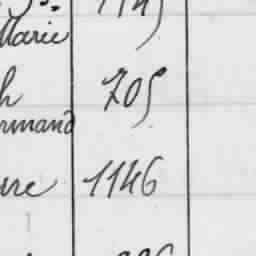 Marie
h 705
rmand
ure 1146